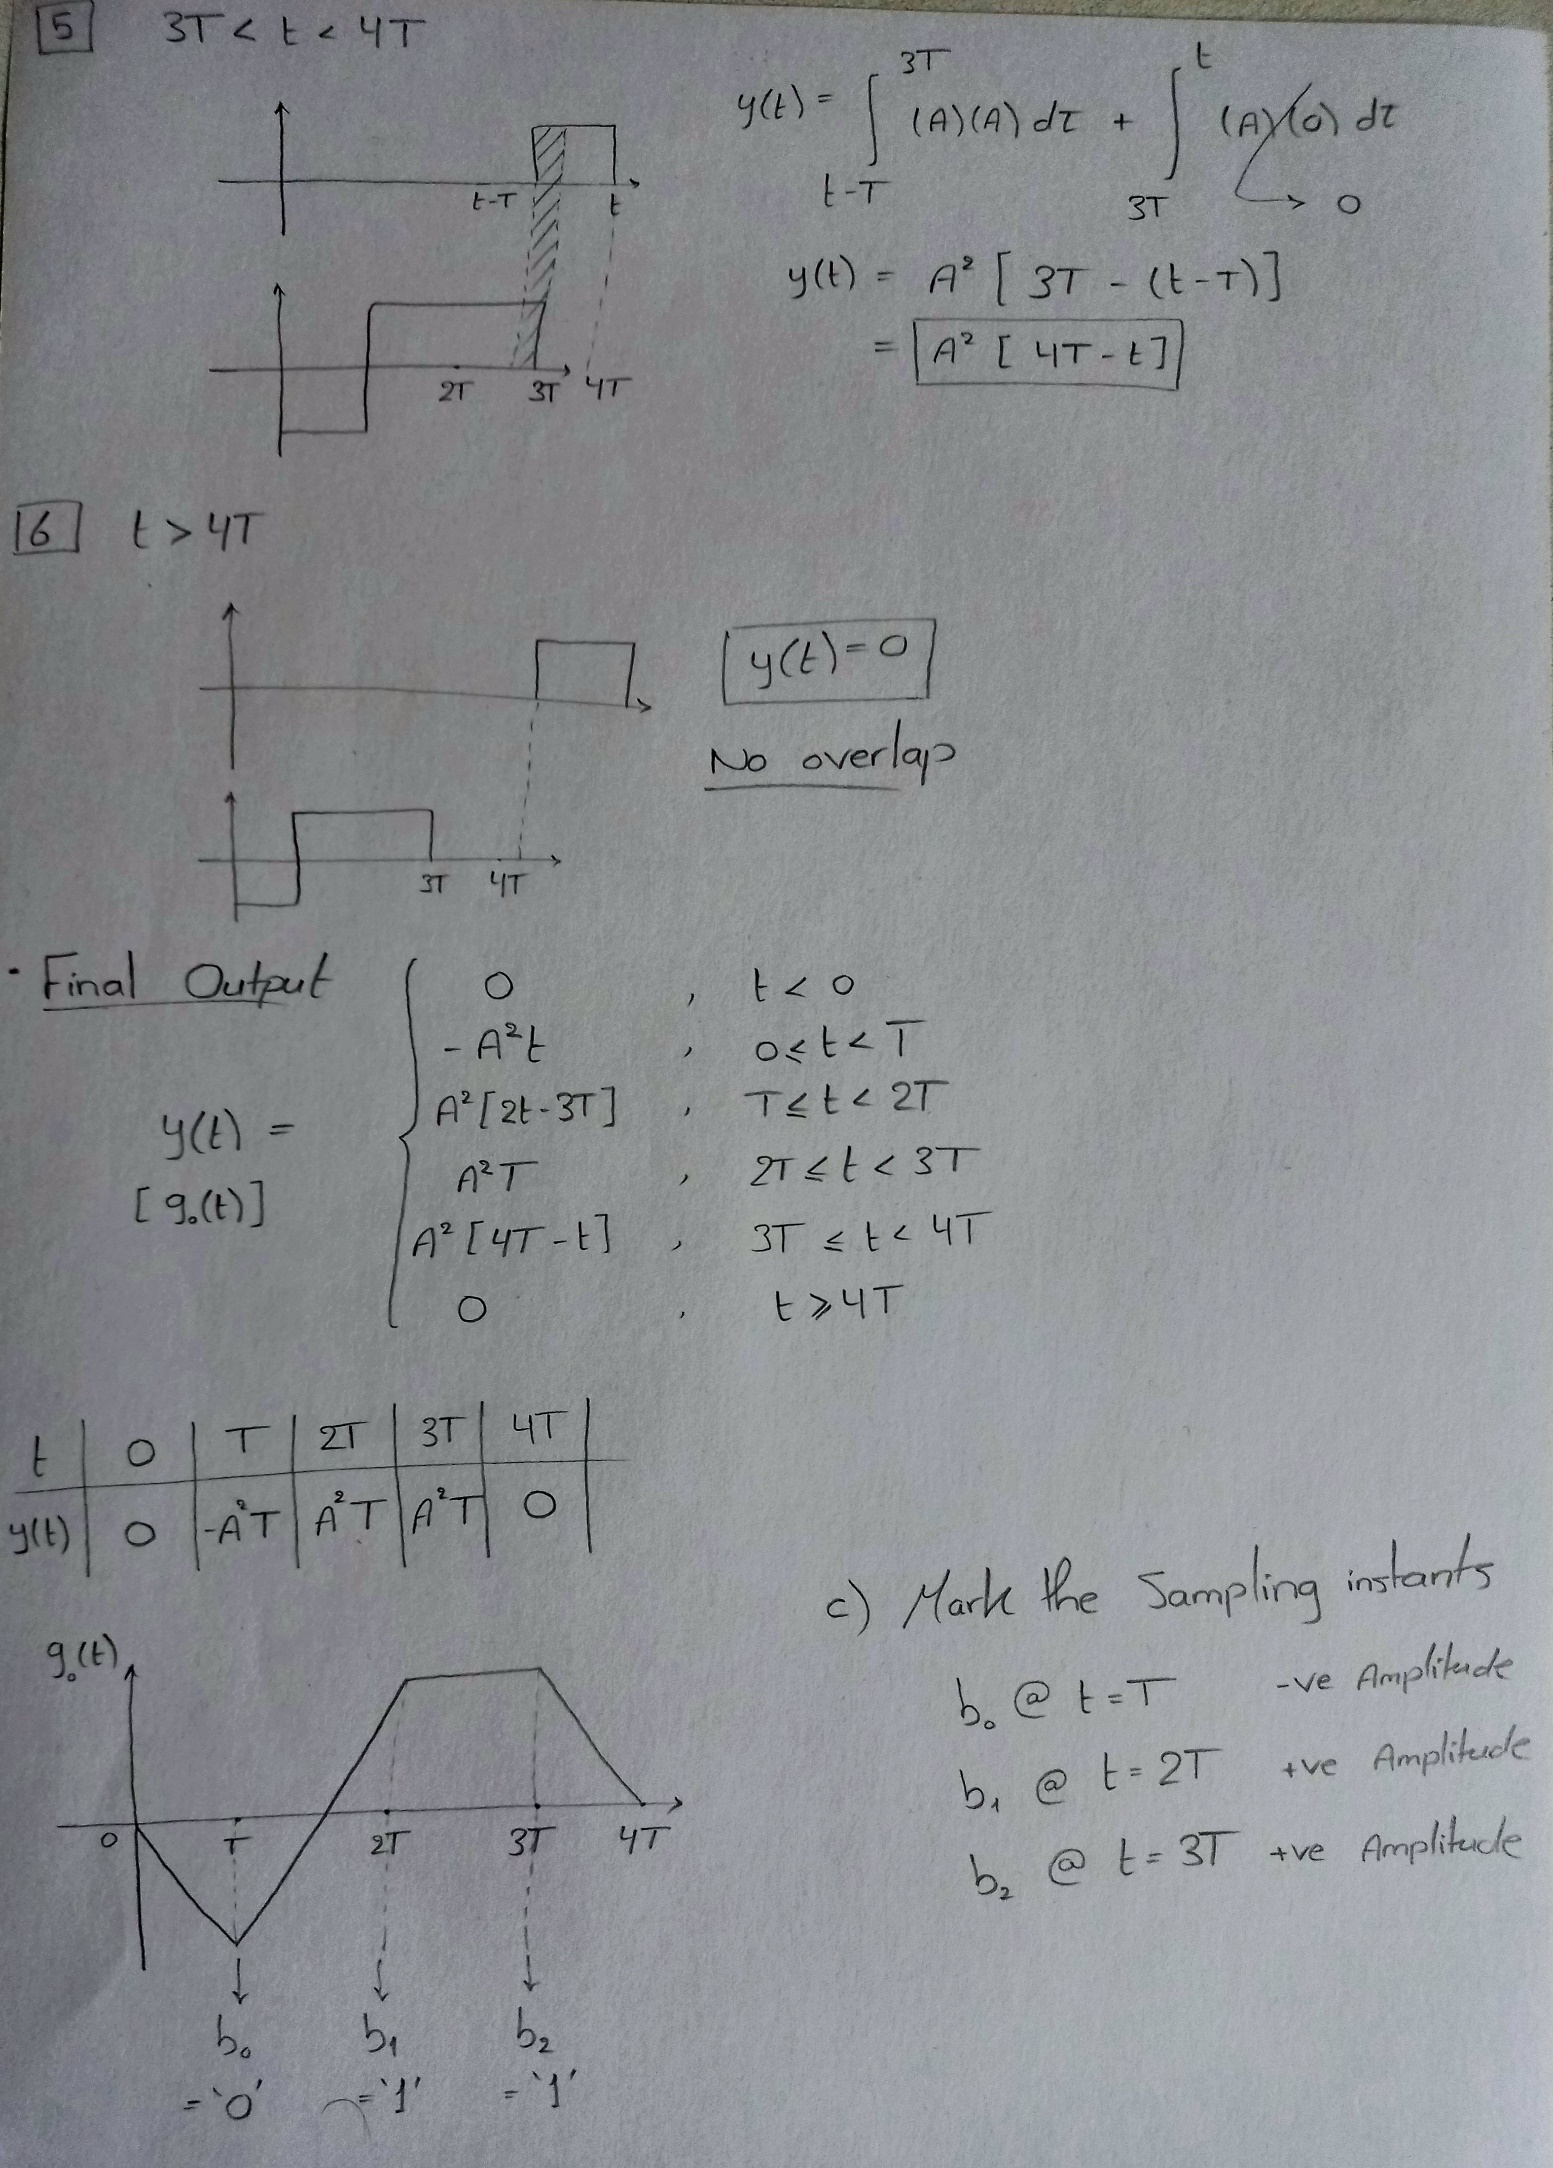 5 3T < t < 4T
y(t) = ∫_{t-T}^{3T} (A)(A) dτ + ∫_{3T}^{t} (A)(0) dτ
→ 0
t-T t
y(t) = A² [ 3T - (t-T)]
= A² [ 4T - t]
2T 3T 4T
6 t > 4T
y(t) = 0
No overlap
3T 4T
· Final Output
y(t) =
[g₀(t)]
0 , t < 0
- A²t , 0 ≤ t < T
A² [2t - 3T] , T ≤ t < 2T
A²T , 2T ≤ t < 3T
A² [4T - t] , 3T ≤ t < 4T
0 , t ≥ 4T
t 0 T 2T 3T 4T
y(t) 0 -A²T A²T A²T 0
c) Mark the Sampling instants
b₀ @ t = T -ve Amplitude
b₁ @ t = 2T +ve Amplitude
b₂ @ t = 3T +ve Amplitude
g₀(t)
0 T 2T 3T 4T
b₀ b₁ b₂
= '0' = '1' = '1'